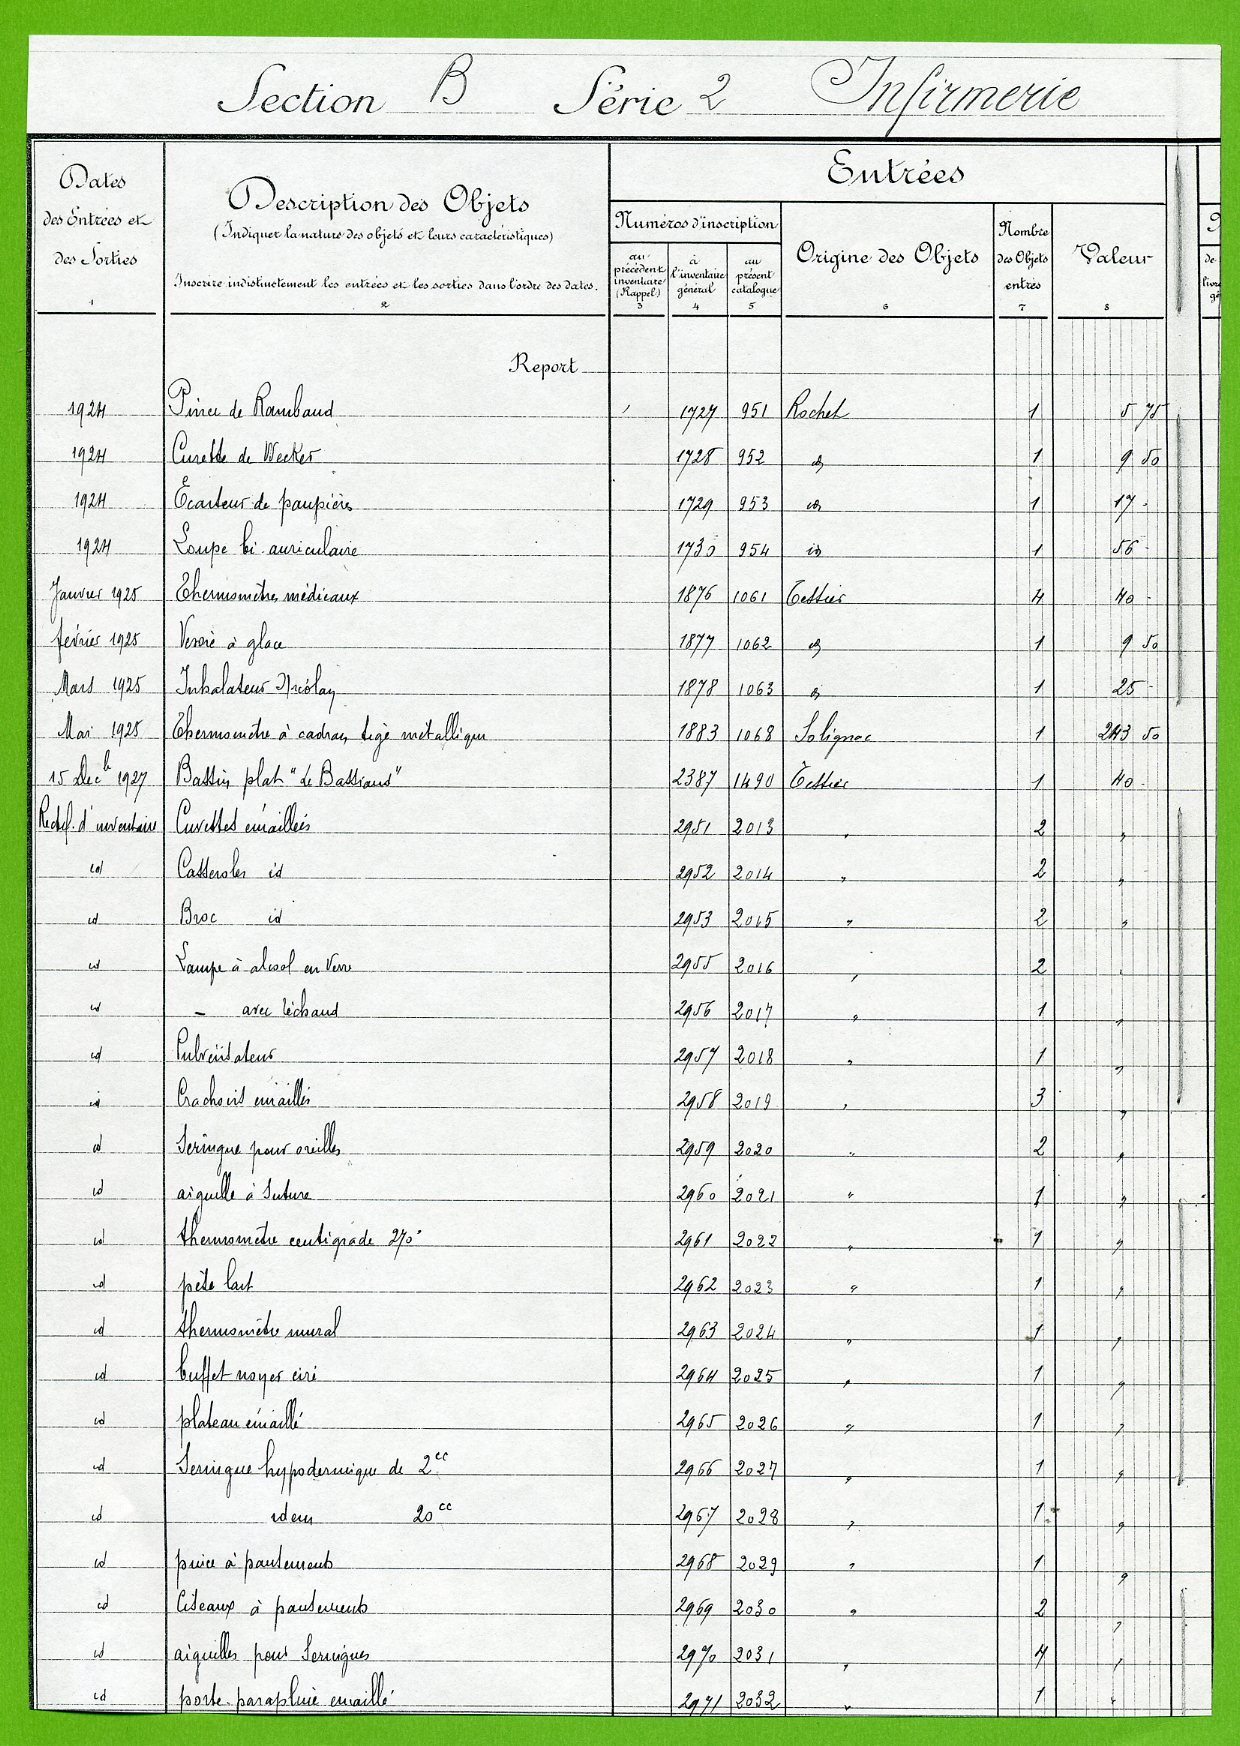 Section B Série 2 Infirmerie
Dates des Entrées et des Sorties
1
Description des Objets
(Indiquer la nature des objets et leurs caractéristiques)
Inscrire indistinctement les entrées et les sorties dans l'ordre des dates.
2
Entrées
Numéros d'inscription
au précédent inventaire (Rappel)
3
à l'inventaire général
4
au présent catalogue
5
Origine des Objets
6
Nombre des Objets entrés
7
Valeur
8
Report
1924 Pince de Rambaud 1727 951 Rochet 1 5 75
1924 Curette de Wecker 1728 952 id 1 9 50
1924 Écarteur de paupières 1729 953 id 1 17 -
1924 Loupe bi-auriculaire 1730 954 id 1 56 -
Janvier 1925 Thermomètres médicaux 1876 1061 Tessier 4 40 -
février 1925 Vessie à glace 1877 1062 id 1 9 50
Mars 1925 Inhalateur Nicolay 1878 1063 id 1 25 -
Mai 1925 Thermomètre à cadran, tige métallique 1883 1068 Solignac 1 243 50
15 Dec 1927 Bassin plat "Le Bassians" 2387 1490 Tessier 1 40 -
Rectif. d'inventaire Cuvettes émaillées 2951 2013 " 2 "
id Casseroles id 2952 2014 " 2 "
id Broc id 2953 2015 " 2 "
id Lampe à alcool en Verre 2955 2016 " 2 "
id – avec réchaud 2956 2017 " 1 "
id Pulvérisateur 2957 2018 " 1 "
id Crachoirs émaillés 2958 2019 " 3 "
id Seringue pour oreilles 2959 2020 " 2 "
id aiguille à suture 2960 2021 " 1 "
id thermomètre centigrade 270° 2961 2022 " 1 "
id pèse lait 2962 2023 " 1 "
id thermomètre mural 2963 2024 " 1 "
id buffet noyer ciré 2964 2025 " 1 "
id plateau émaillé 2965 2026 " 1 "
id Seringue hypodermique de 2cc 2966 2027 " 1 "
id idem 20cc 2967 2028 " 1 "
id pince à pansements 2968 2029 " 1 "
id Ciseaux à pansements 2969 2030 " 2 "
id aiguilles pour Seringues 2970 2031 " 4 "
id porte-parapluie émaillé 2971 2032 " 1 "